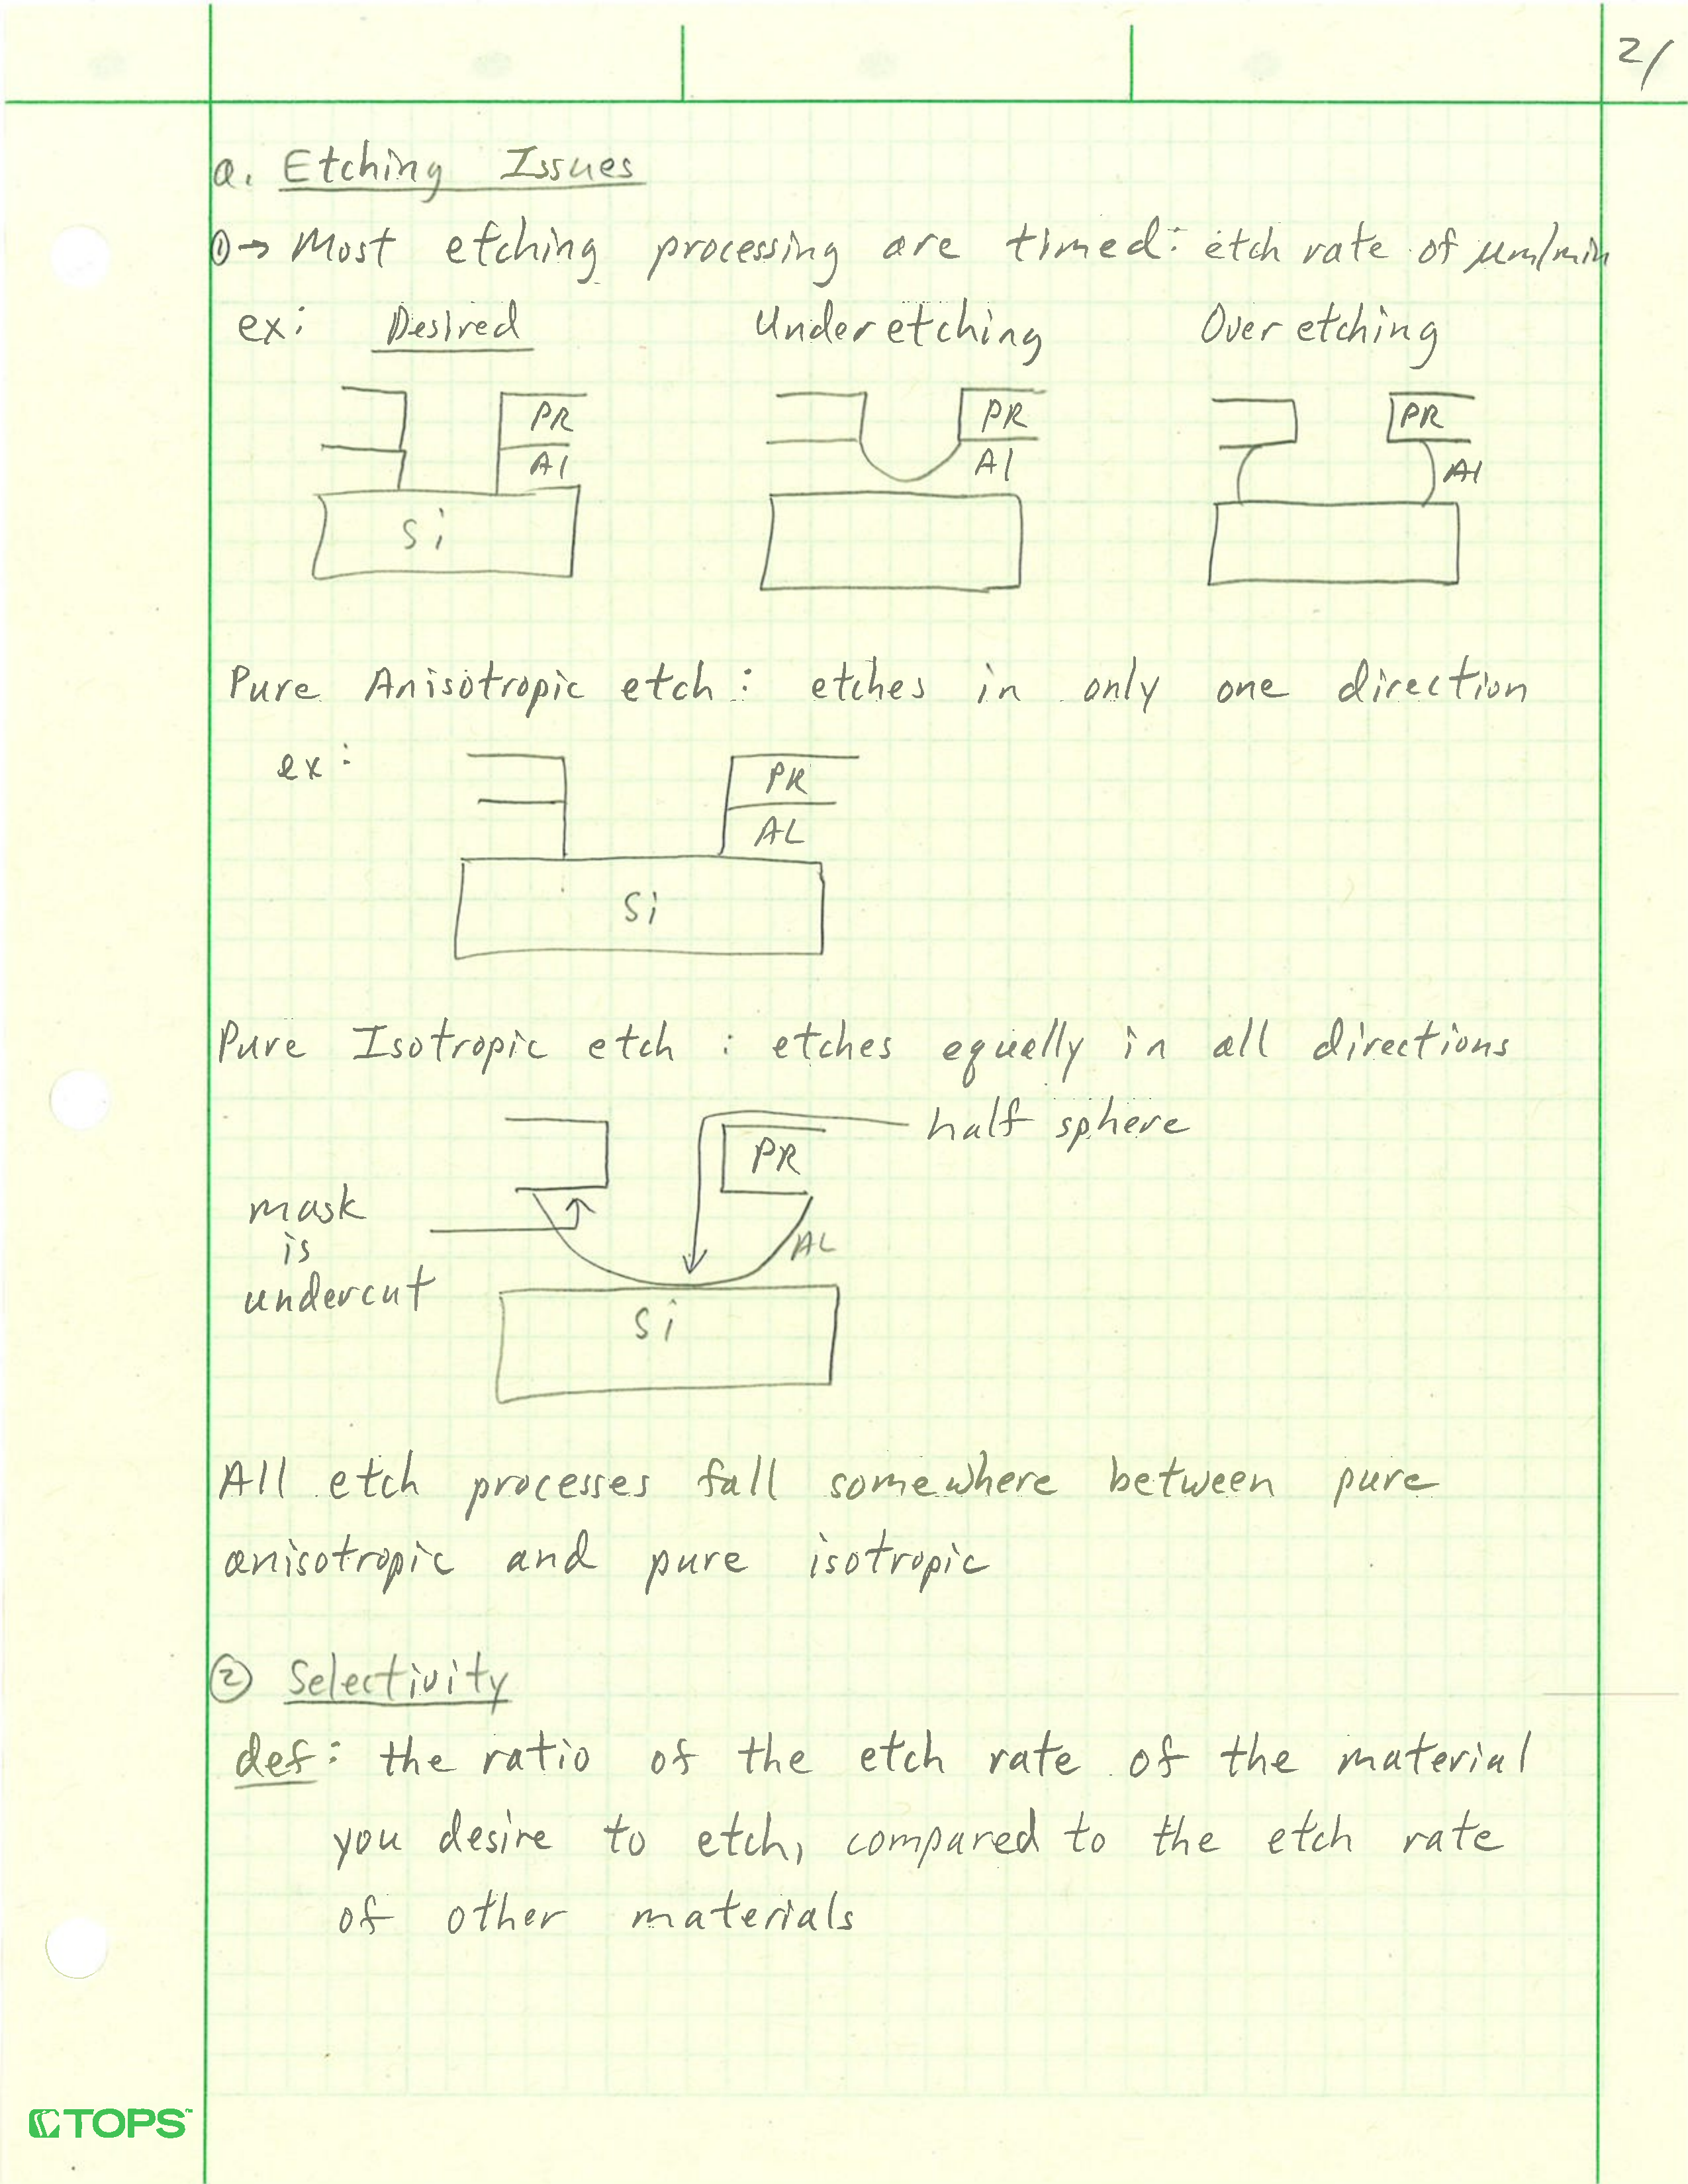 2/
a. Etching Issues
① → Most etching processing are timed: etch rate of μm/min
ex: Desired Underetching Over etching
PR PR PR
Al Al Al
Si
Pure Anisotropic etch: etches in only one direction
ex:
PR
AL
Si
Pure Isotropic etch : etches equally in all directions
half sphere
PR
mask
is
undercut
AL
Si
All etch processes fall somewhere between pure
anisotropic and pure isotropic
② Selectivity
def: the ratio of the etch rate of the material
you desire to etch, compared to the etch rate
of other materials
TOPS™